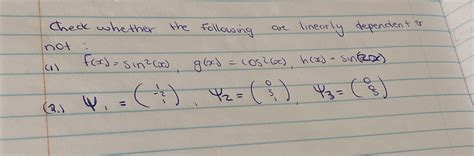 Check whether the following are linearly dependent or
not :
(1) f(x) = sin²(x), g(x) = cos²(x), h(x) = sin(2x)
(2.) Ψ₁ = ( ), Ψ₂ = ( ), Ψ₃ = ( )